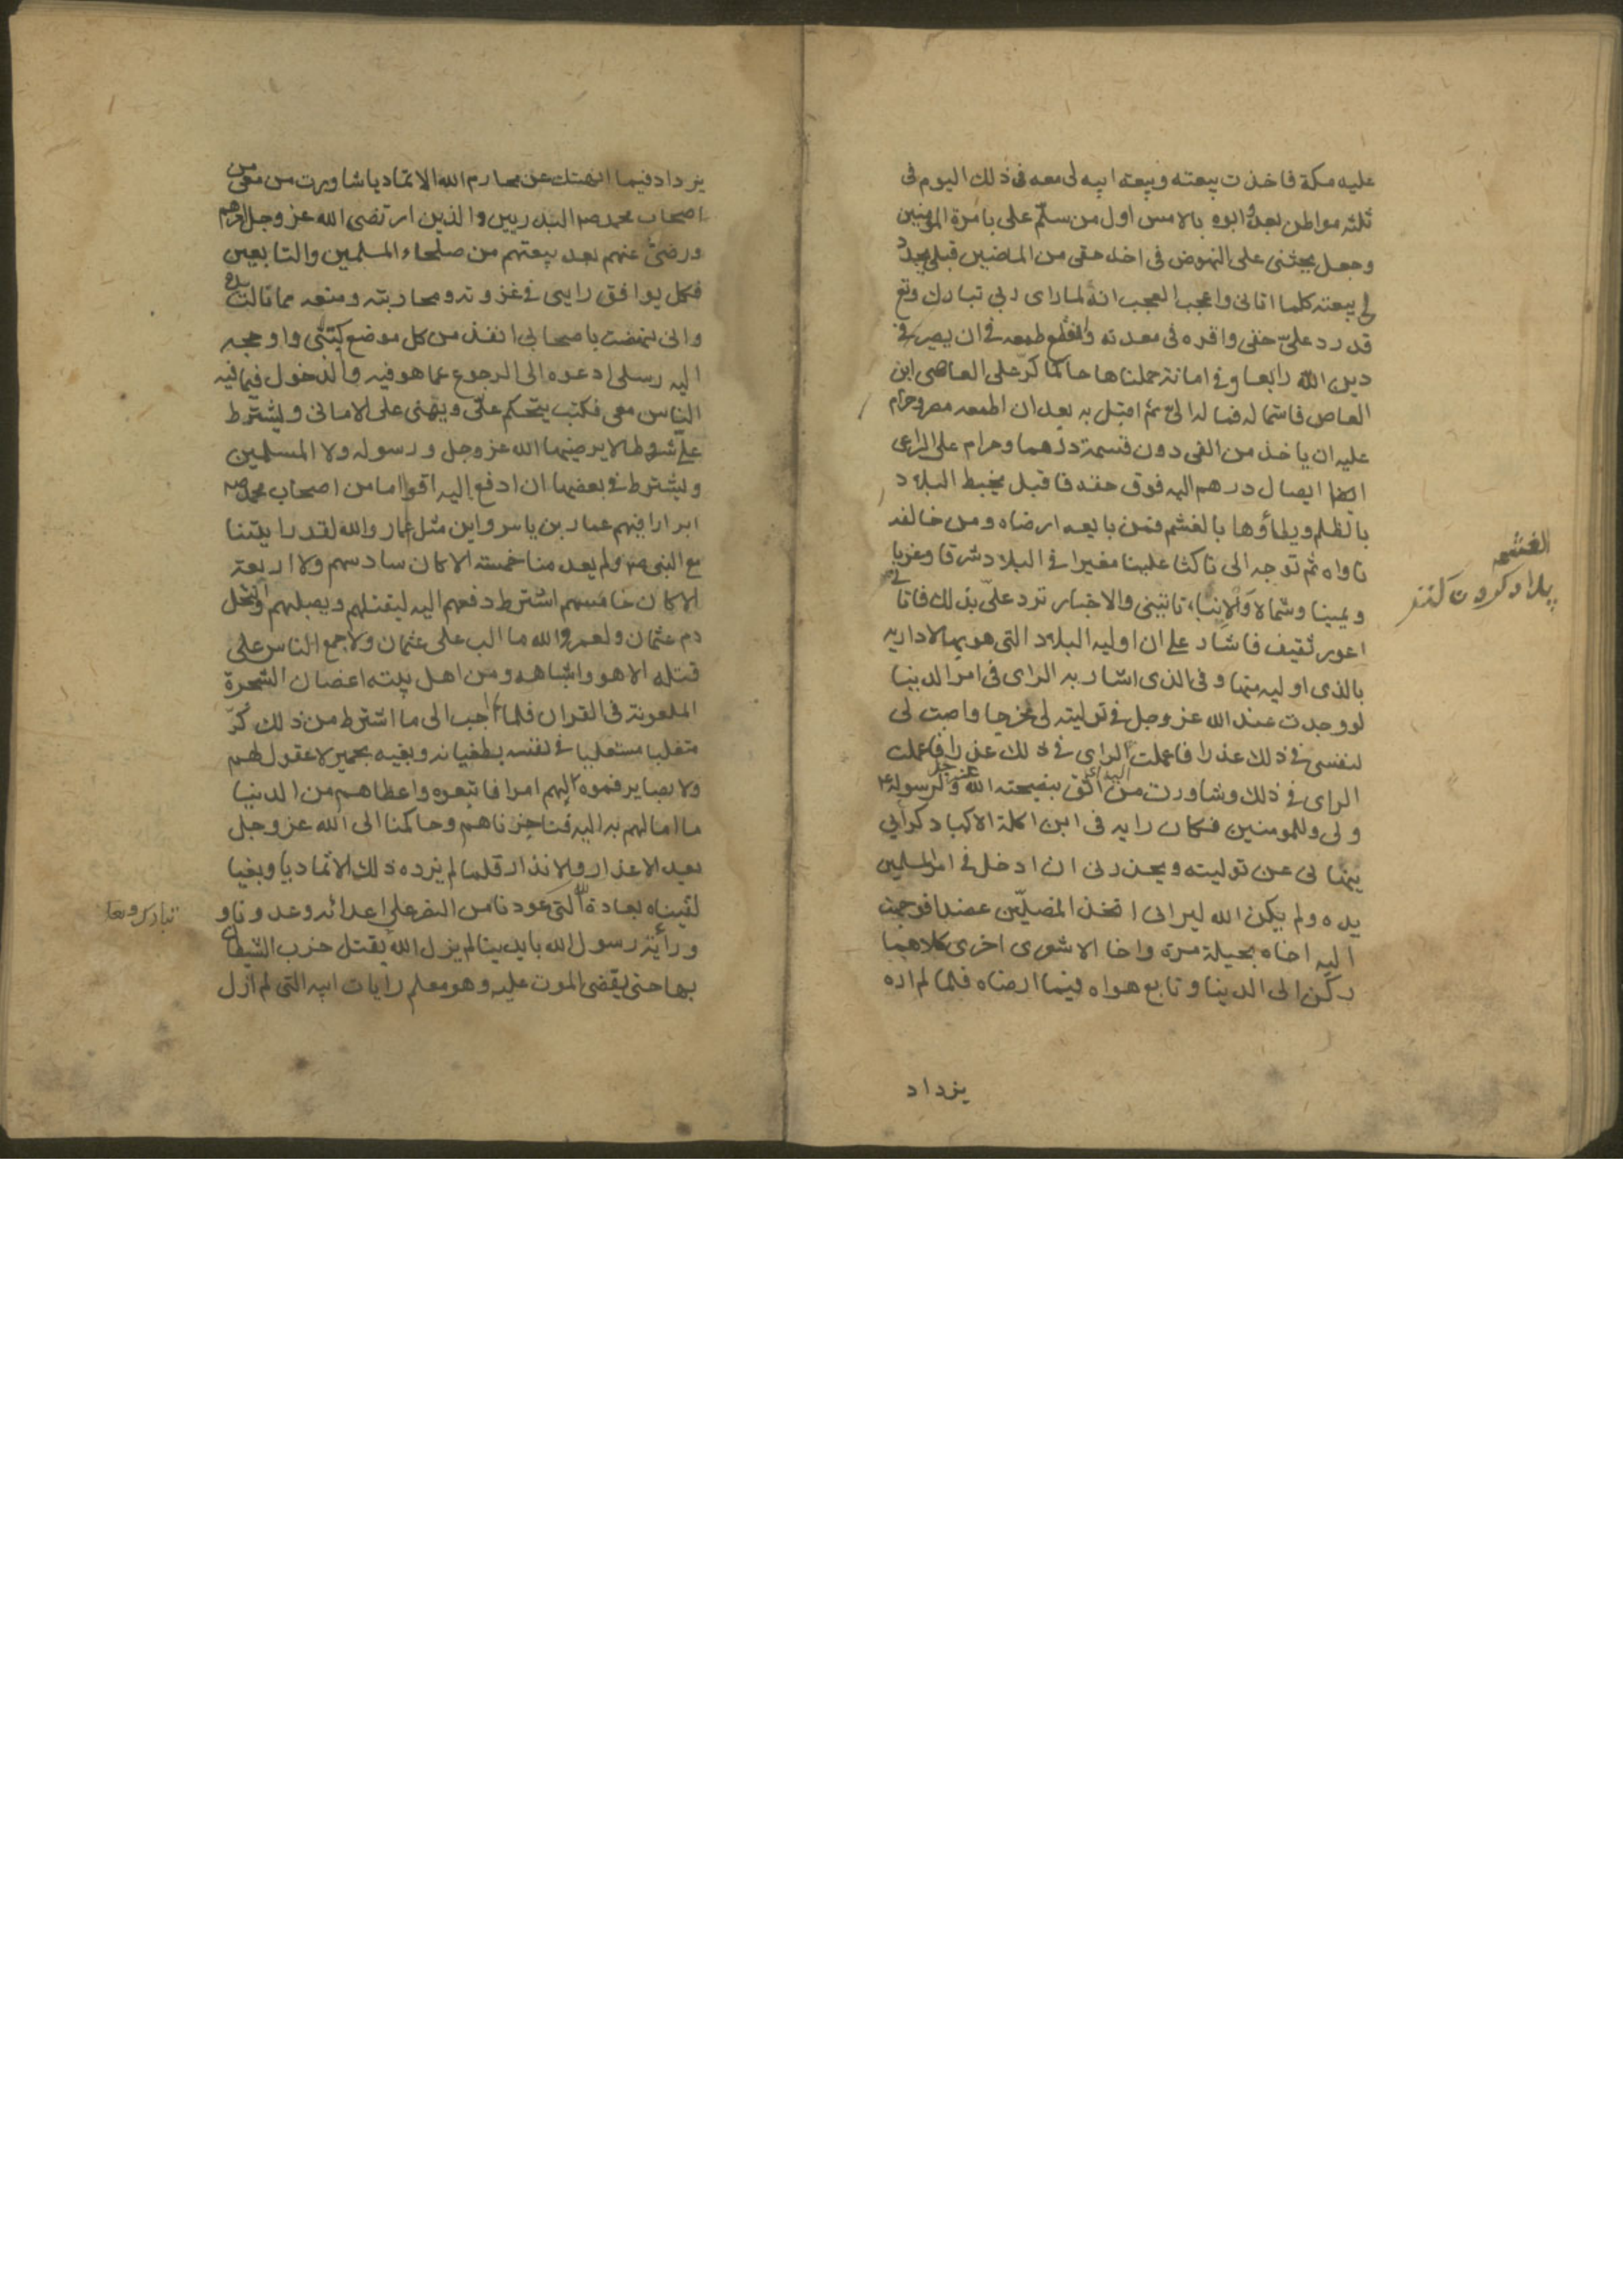 عليه مكة فاخذت بيعته وبيعة ابيه لى معه فى ذلك اليوم فى
ثلثه مواطن بعده وابوه بالامس اول من سلّم على بامرة المومنين
وجعل يحثنى على النهوض فى اخذ حقى من الماضين قبلى يجدد
لى بيعته كلما اتانى واعجب العجب انه لما راى ربى تبارك وتع
قد رد علىّ حقى واقره فى معدنه وانقطع طمعه فى ان يصير فى
دين الله رابعا وفى امانة حملناها حاكما كرّ على العاصى ابن
العاص فاستماله فمال اليه ثم اقبل به بعد ان اطمعه مصر وحرام
عليه ان ياخذ من الفى دون قسمة درهما وحرام على الراعى
ايصال درهم اليه فوق حقه فاقبل يخبط البلاد
بالظلم ويطأوها بالغشم فمن بايعه ارضاه ومن خالفه
ناواه ثم توجه الى ناكثا علينا مغيرا فى البلاد شرقا وغربا
ويمينا وشمالا والانباء تاتينى والاخبار ترد علىّ بذلك فاتانى
اعور ثقيف فاشار على ان اوليه البلاد التى هو بها لاداريه
بالذى اوليه منها وفى الذى اشار به الراى فى امر الدنيا
لو وجدت عند الله عز وجل فى توليته لى مخرجا واصبت لى
لنفسى فى ذلك عذرا فاعملت الراى فى ذلك عذرا فاعملت
الراى فى ذلك وشاورت من اثق بنصيحته الله عز وجل ولرسوله
ولى وللمومنين فكان رايه فى ابن اكلة الاكباد كرأيى
ينهانى عن توليته ويحذرنى ان ادخل فى امر المسلمين
يده ولم يكن الله ليرانى اتخذ المضلّين عضدا فوجهت
اليه اخاه بجيلة مرة واخا الاشعرى اخرى كلاهما
ركن الى الدنيا وتابع هواه فيما ارضاه فلما لم اره
يزداد
الغشم
يزداد فيما انتهك من محارم الله الا تماديا شاورت من معى من
اصحاب محمد صم البدريين والذين ارتضى الله عز وجل امرهم
ورضى عنهم بعد بيعتهم من صلحاء المسلمين والتابعين
فكل يوافق رايى فى غزوته ومحاربته ومنعه مما نالت يده
وانى نهضت باصحابى انفذ من كل موضع كتبى واوجه
اليه رسلى ادعوه الى الرجوع عما هو فيه والدخول فيما فيه
الناس معى فكتب يتحكم علىّ ويتمنى على الامانى ويشترط
علىّ شروطا لا يرضيها الله عز وجل ورسوله ولا المسلمين
ويشترط فى بعضها ان ادفع اليه اقواما من اصحاب محمد صم
ابرارا فيهم عمار بن ياسر واين مثل عمار والله لقد رايتنا
مع النبى صم ولم يعد منا خمسة الا كان سادسهم ولا اربعة
الا كان خامسهم اشترط دفعهم اليه ليقتلهم ويصلبهم وانتحل
دم عثمان ولعمر والله ما الب على عثمان ولا جمع الناس على
قتله الا هو واشباهه ومن اهل بيته اغصان الشجرة
الملعونة فى القران فلما لم اجب الى ما اشترط من ذلك كرّ
متقلبا مستعليا فى نفسه بطغيانه وبغيه بحمير لا عقول لهم
ولا بصاير فموه لهم امرا فاتبعوه واعطاهم من الدنيا
ما امالهم به اليه فناجزناهم وحاكمنا الى الله عز وجل
بعد الاعذار والانذار فلما لم يزده ذلك الا تماديا وبغيا
لقيناه بعادة الله التى عودنا من النصر على اعدائه وعدونا و
وراية رسول الله بايدينا لم يزل الله يقتل حزب الشيطان
بها حتى يقضى الموت عليه وهو معلم رايات ابيه التى لم ازل
تبارك وتعا